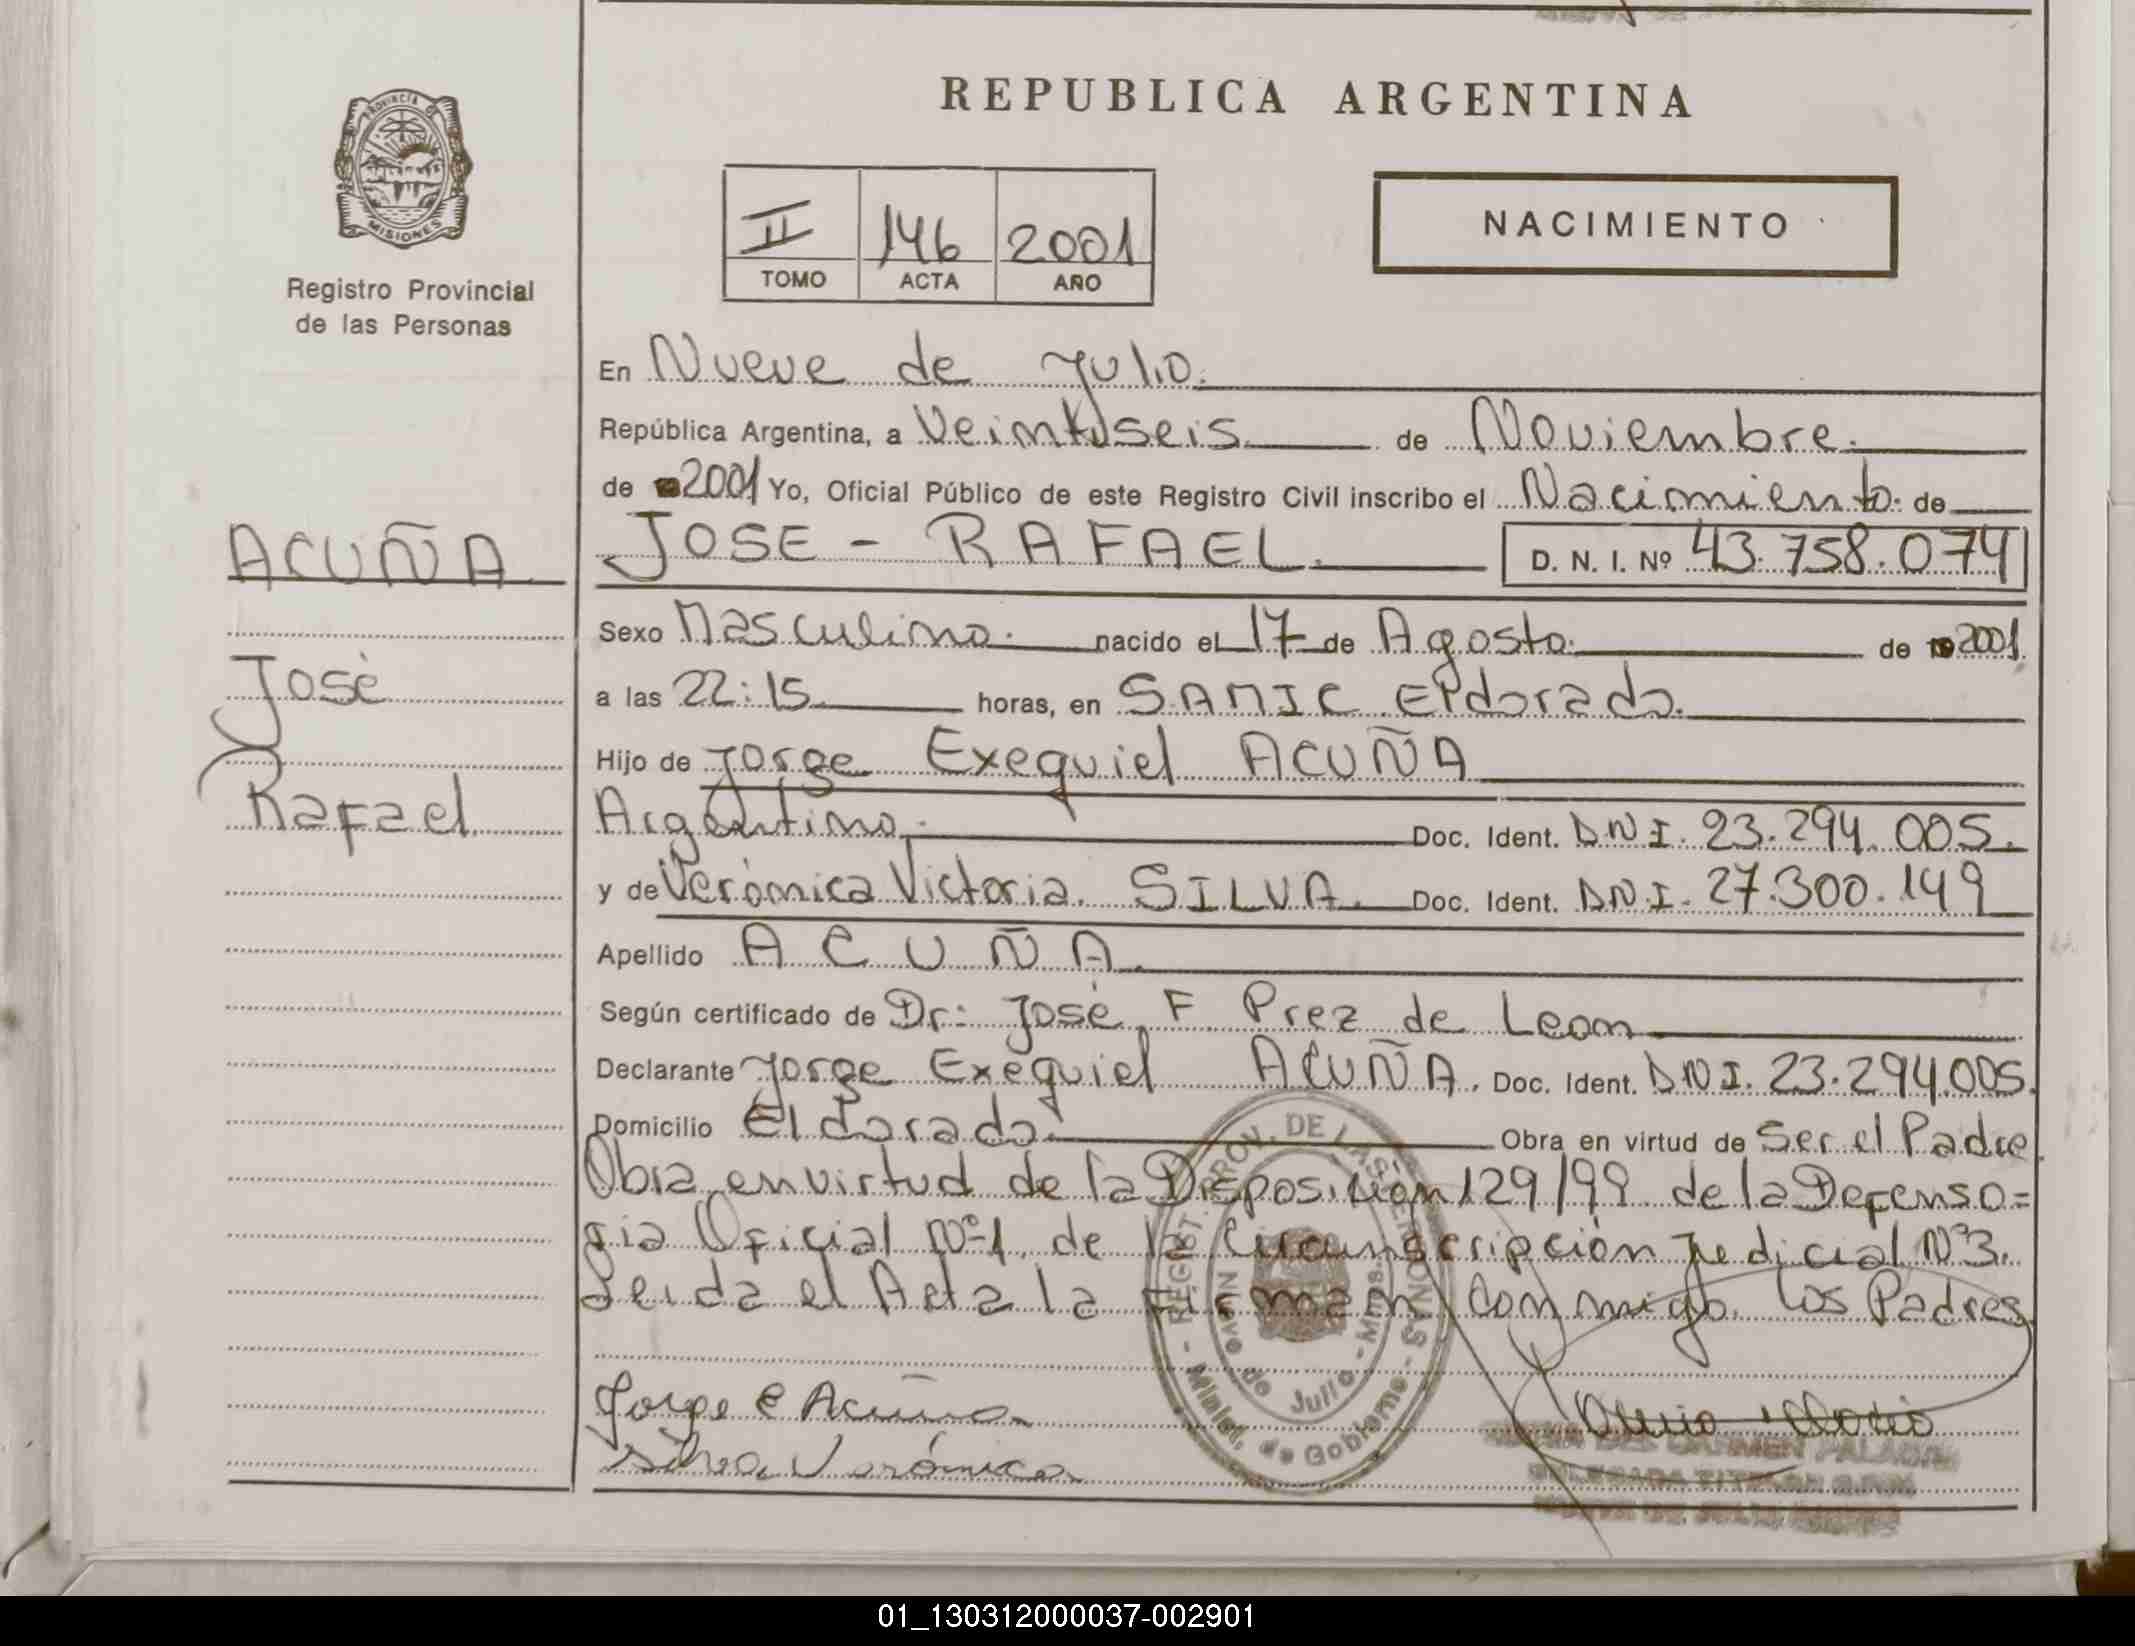 REPUBLICA ARGENTINA
PROVINCIA DE
MISIONES
Registro Provincial
de las Personas
II 146 2001
TOMO ACTA AÑO
NACIMIENTO
En Nueve de Julio.
República Argentina, a Veintiseis de Noviembre.
de 2001 Yo, Oficial Público de este Registro Civil inscribo el Nacimiento de
ACUÑA
José
Rafael
JOSE - RAFAEL. D. N. I. Nº 43.758.074
Sexo Masculino. nacido el 17 de Agosto. de 2001
a las 22:15 horas, en SAMIC Eldorado.
Hijo de Jorge Exequiel ACUÑA
Argentino. Doc. Ident. DNI. 23.294.005.
y de Verónica Victoria. SILVA. Doc. Ident. DNI. 27.300.149
Apellido ACUÑA.
Según certificado de Dr: José F Prez de Leon
Declarante Jorge Exequiel ACUÑA. Doc. Ident. DNI. 23.294.005.
Domicilio Eldorado. Obra en virtud de Ser el Padre
Obra en virtud de la Disposición 129/99 de la Defenso=
ria Oficial Nº1. de la Circunscripción Judicial Nº3.
Leida el Acta la firman conmigo. los Padres
Jorge E Acuña
Silva Verónica
REGIST. PROV. DE LAS PERSONAS
Nueve de Julio - Mnes.
- Minist. de Gobierno -
DEL CARMEN
01_130312000037-002901